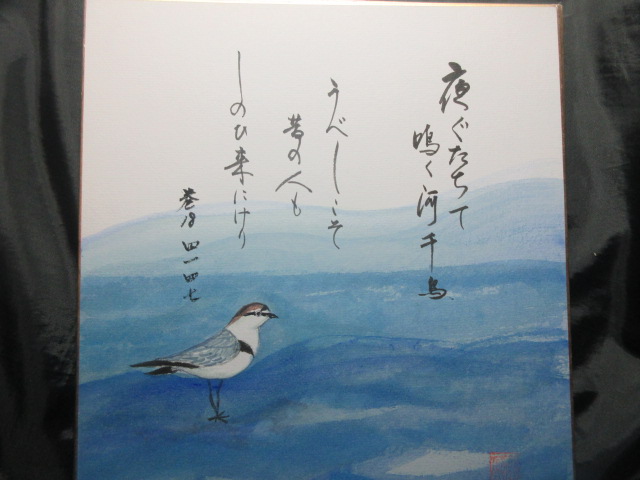 夜ぐたちて
鳴く河千鳥
うべしこそ
昔の人も
しのひ来にけり
巻19 四一四七